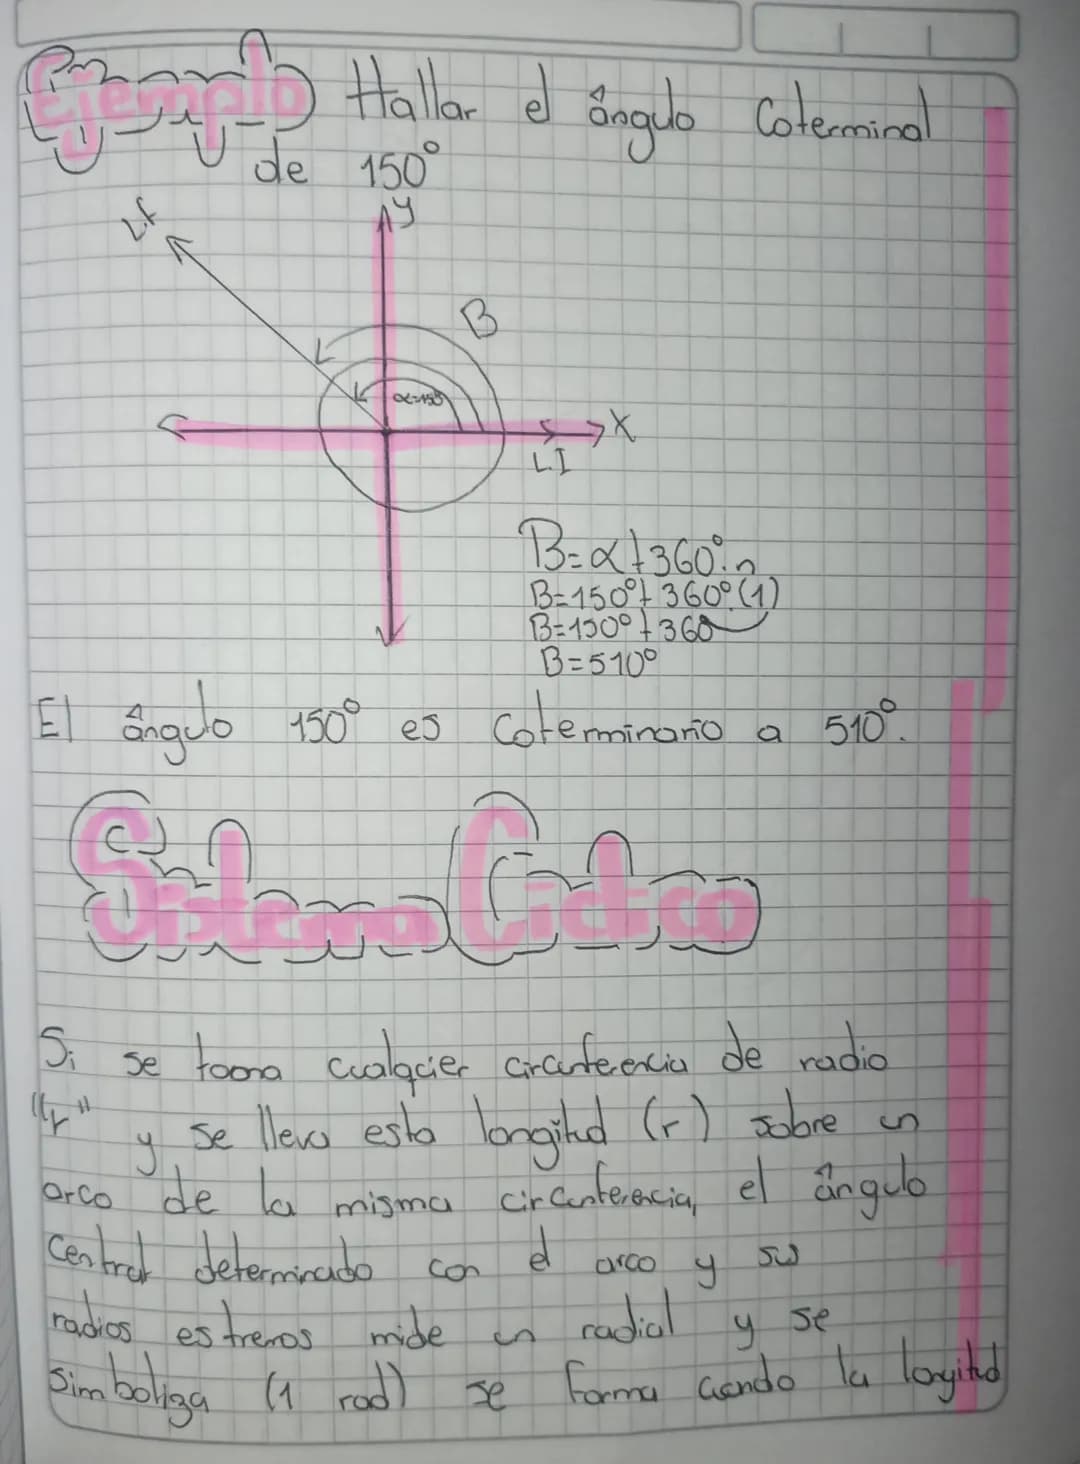 Ejemplo Hallar el ângulo Coterminal
de 150°
Lf
y
B
α=150°
X
LI
B=α+360°.n
B=150°+360°(1)
B=150°+360
B=510°
El ângulo 150° es Coterminario a 510°.
Sistema Ciclico
Si se toma cualqcier circunferencia de radio
"r" y se lleva esta longitud (r) sobre un
arco de la misma circunferencia, el ângulo
Central determinado con el arco y su
radios estremos mide un radial y se
Simboliza (1 rad) se forma cuando la longitud